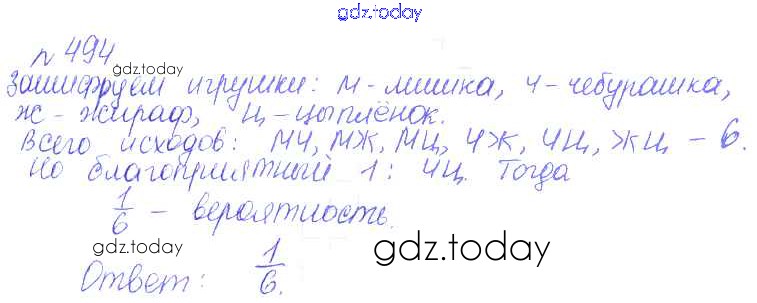 gdz.today
№ 494
gdz.today
Зашифруем игрушки: М-мишка, Ч-чебурашка,
Ж-жираф, Ц-цыплёнок.
Всего исходов: МЧ, МЖ, МЦ, ЧЖ, ЧЦ, ЖЦ - 6.
Но благоприятный 1: ЧЦ. Тогда
gdz.today
1/6 - вероятность.
gdz.today gdz.today
Ответ: 1/6.